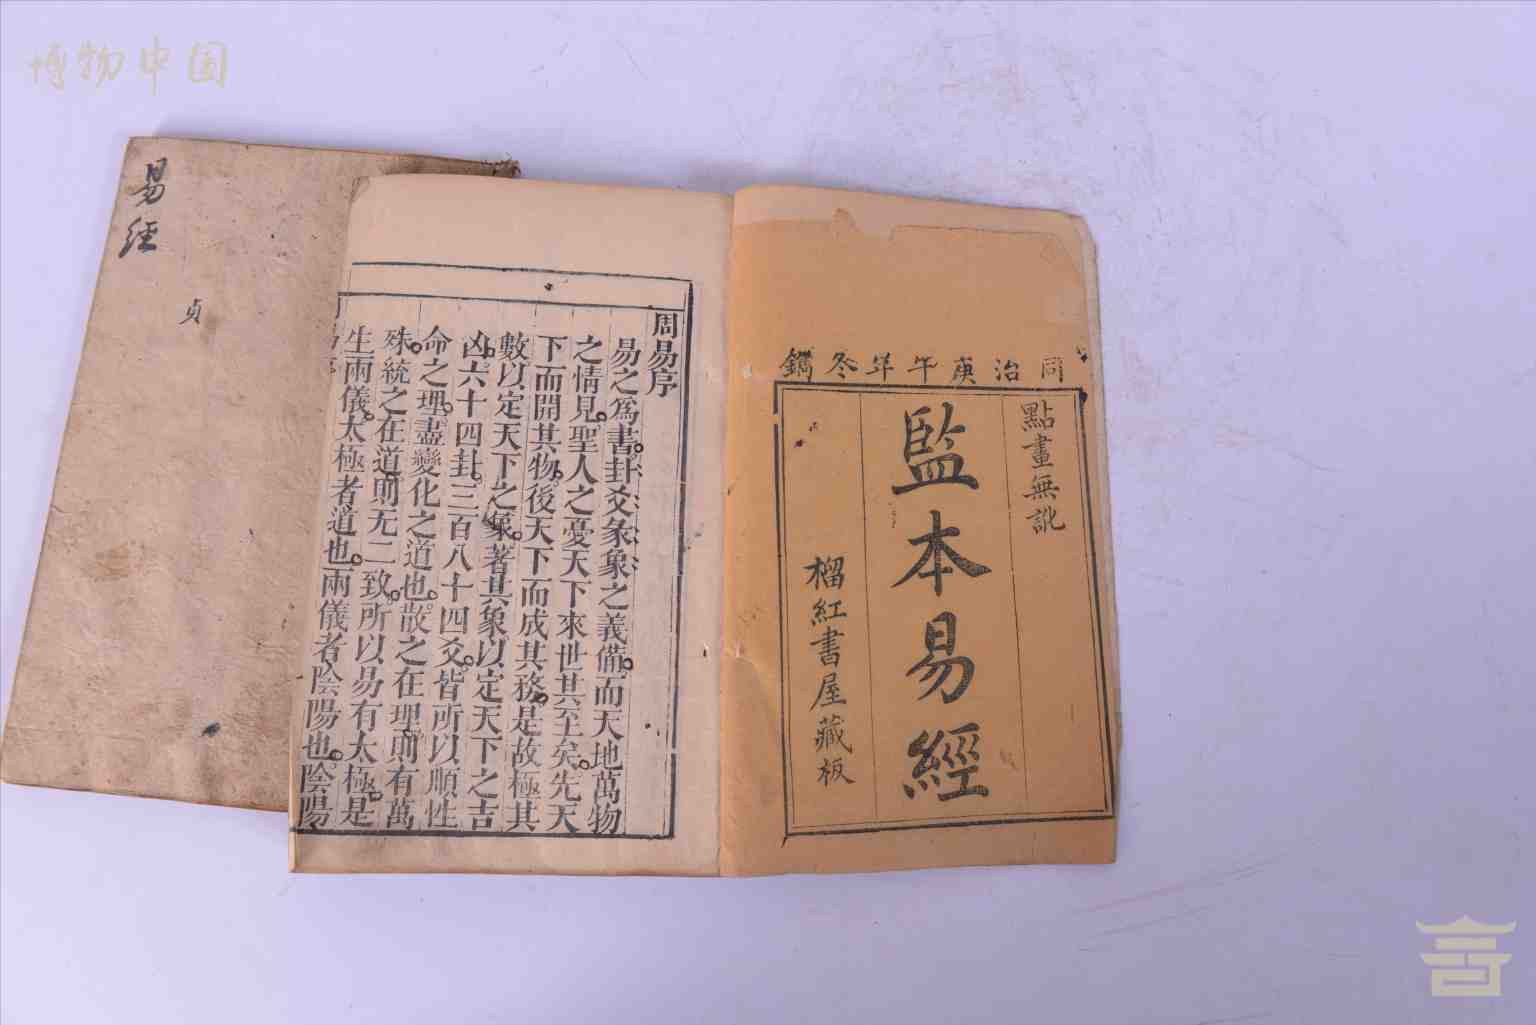 博物中国
易經
貞
同治庚午年冬鐫
點畫無訛
監本易經
榴紅書屋藏板
周易序
易之爲書。卦爻彖象之義備。而天地萬物
之情見。聖人之憂天下來世其至矣。先天
下而開其物。後天下而成其務。是故極其
數以定天下之象。著其象以定天下之吉
凶。六十四卦。三百八十四爻。皆所以順性
命之理。盡變化之道也。散之在理。則有萬
殊。統之在道。則无二致。所以易有太極。是
生兩儀。太極者道也。兩儀者陰陽也。陰陽